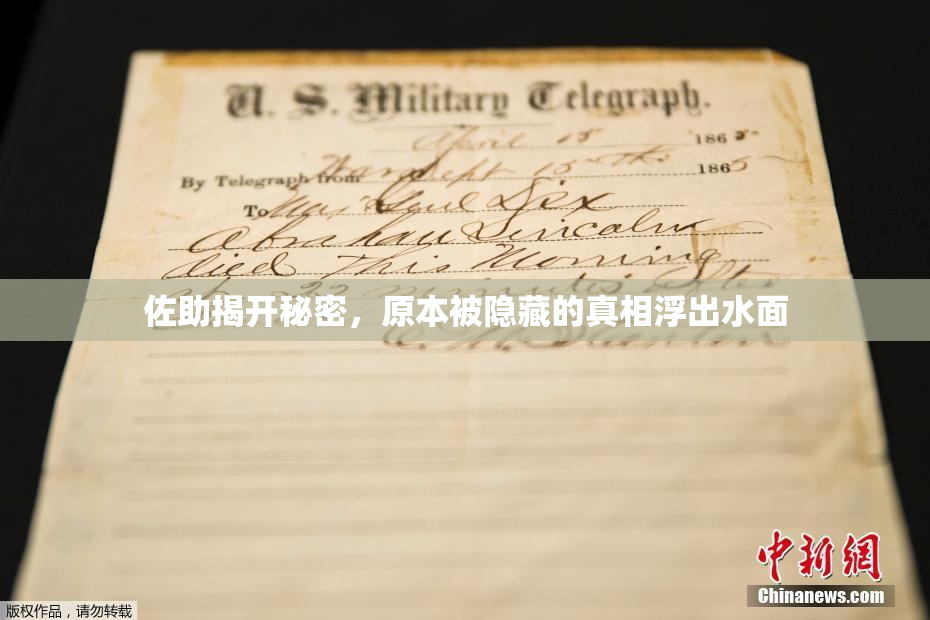 U. S. Military Telegraph.
April 15 1865
By Telegraph from War Dept 15th 1865
To Maj Genl Dix
Abraham Lincoln
died This Morning
at 22 minutes after
佐助揭开秘密，原本被隐藏的真相浮出水面
中新网
Chinanews.com
版权作品，请勿转载